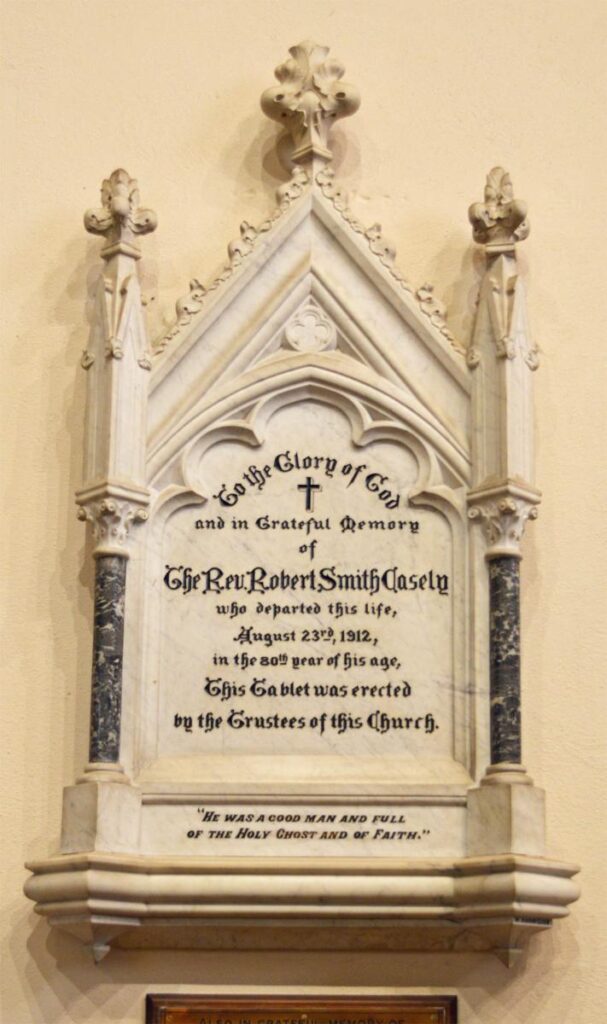 To the Glory of God
and in Grateful Memory
of
The Rev. Robert Smith Casely
who departed this life,
August 23rd, 1912,
in the 80th year of his age,
This Tablet was erected
by the Trustees of this Church.
"He was a good man and full
of the Holy Ghost and of Faith."
ALSO IN GRATEFUL MEMORY OF